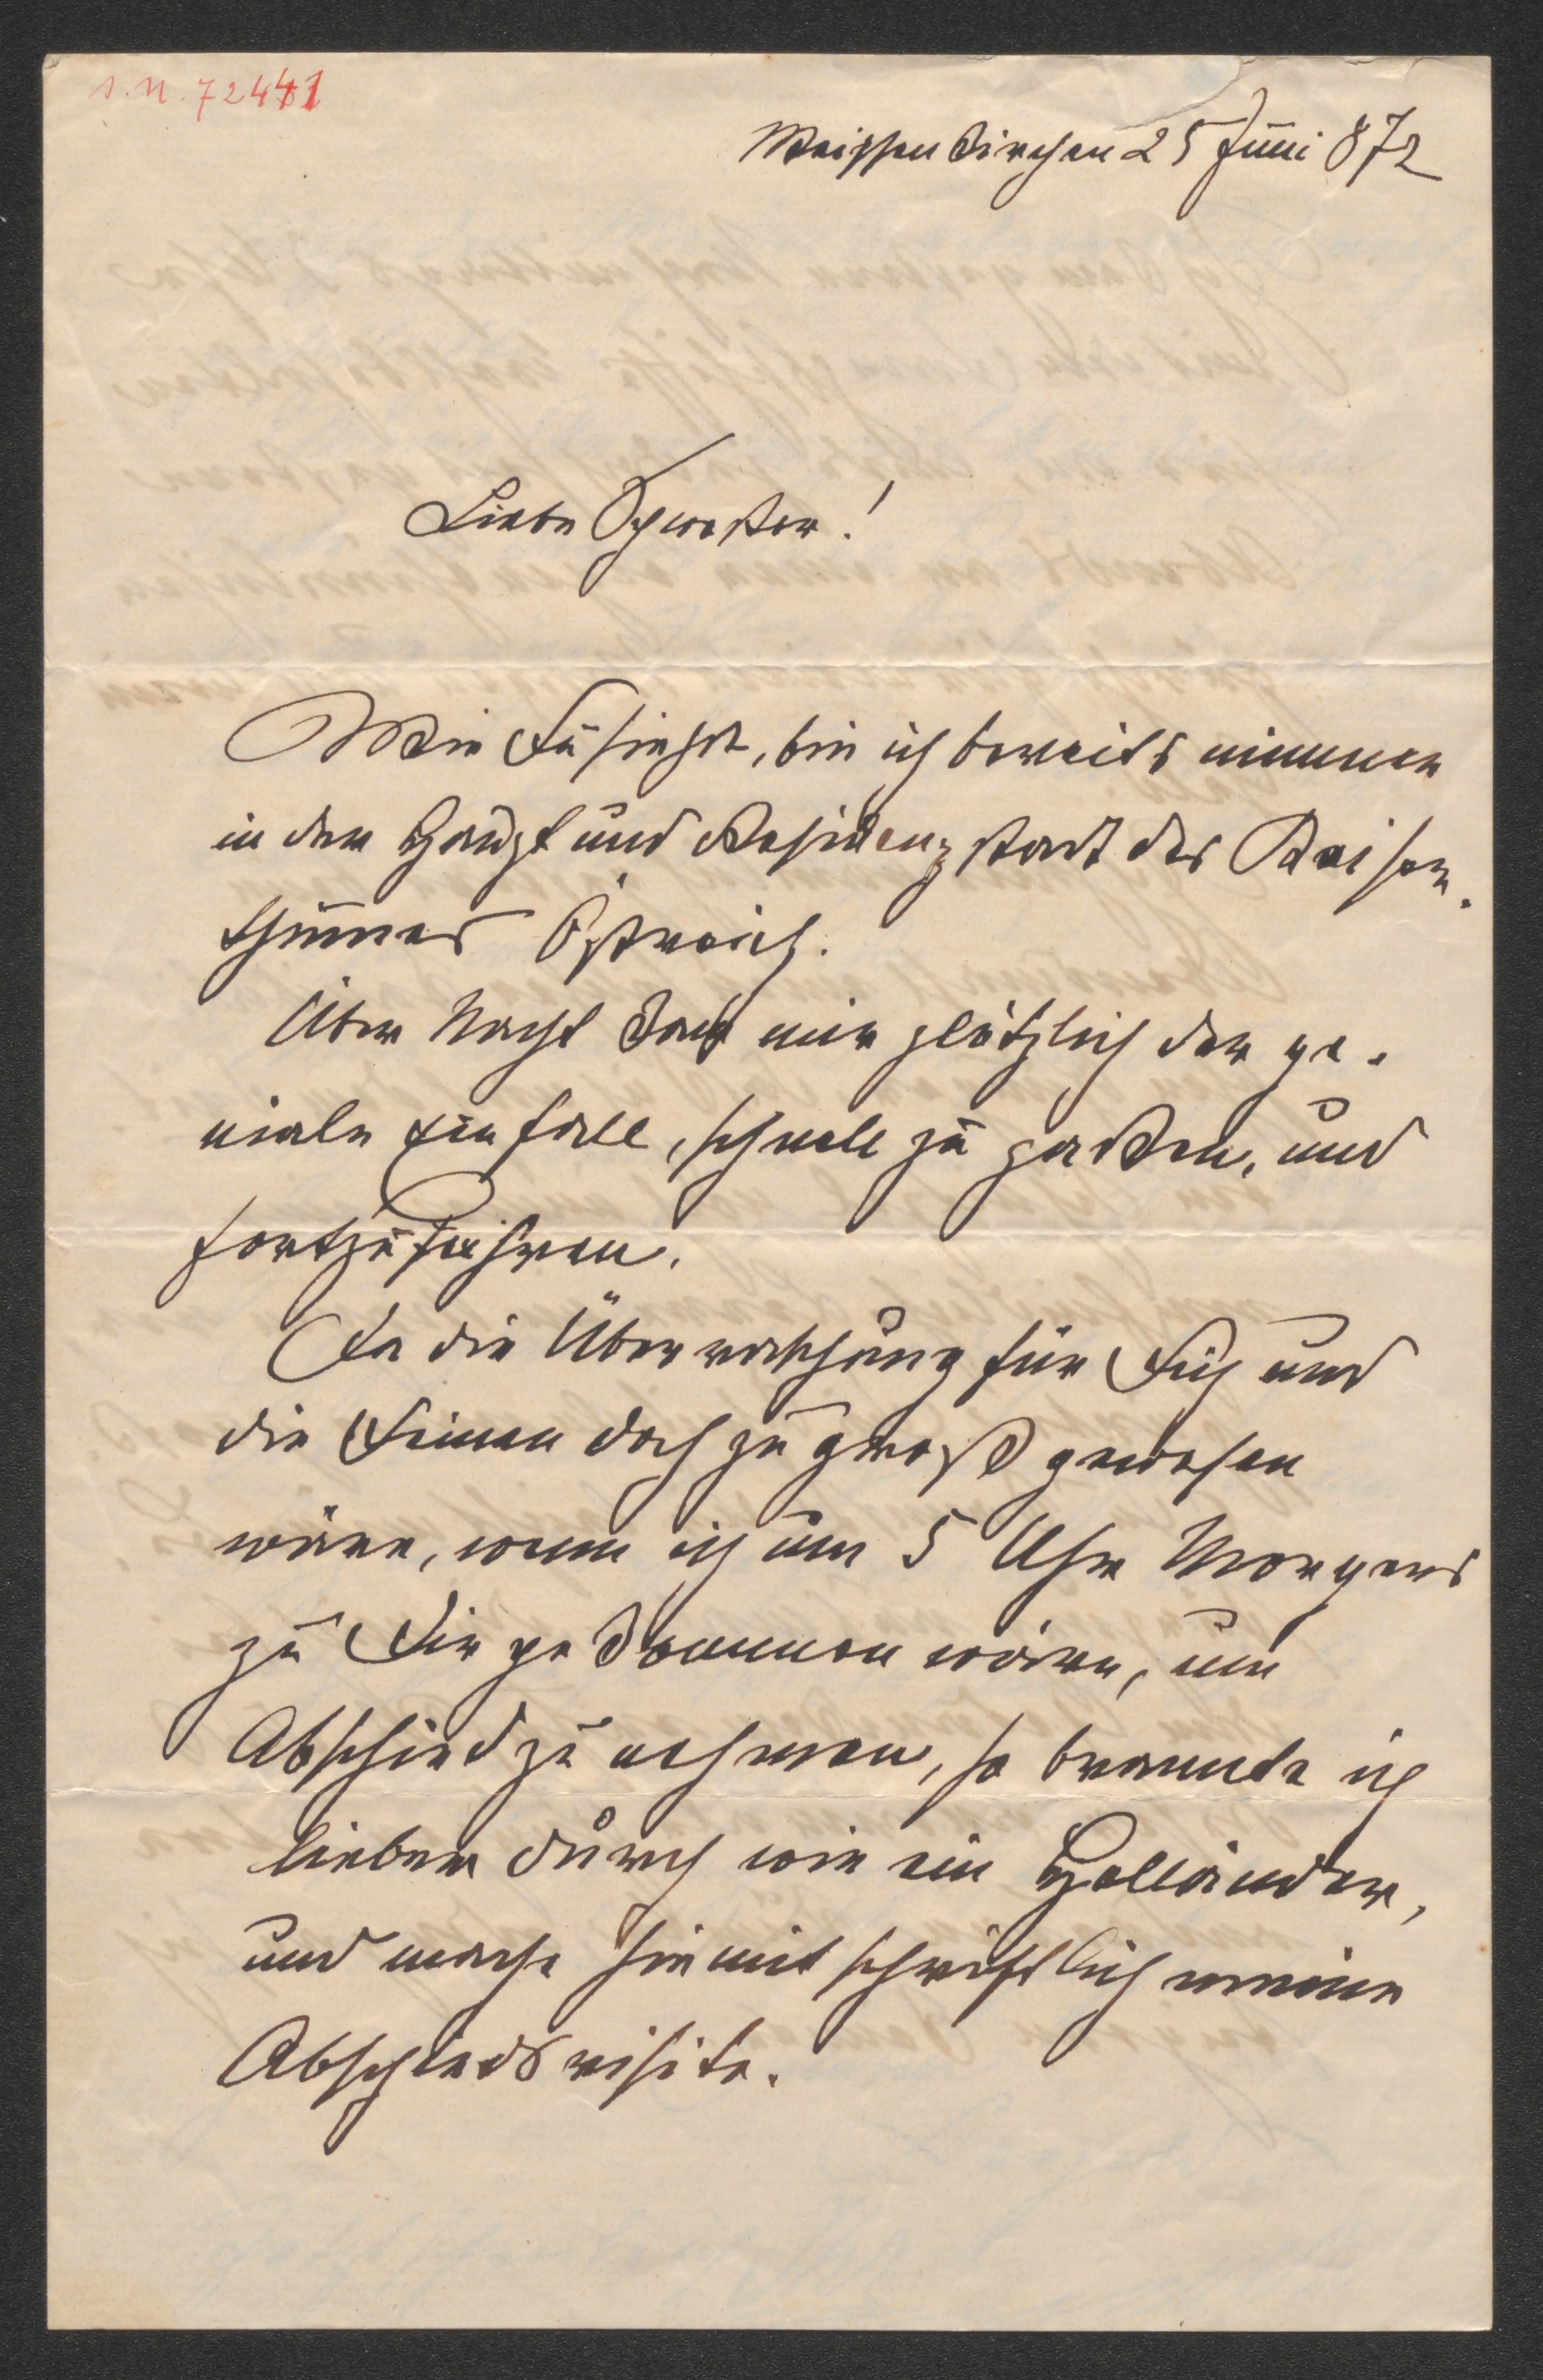 s. n. 72441
Weissenkirchen 25 Juni 872
Liebe Schwester!
Wie Du siehst, bin ich bereits nimmer
in der Haupt und Residenzstadt des Kaiser-
thumes Östreich.
Über Nacht kam mir plötzlich der ge-
niale Einfall, schnell zu packen, und
fortzufahren.
Da die Überraschung für Dich und
die Deinen doch zu groß gewesen
wäre, wenn ich um 5 Uhr Morgens
zu Dir gekommen wäre, um
Abschied zu nehmen, so brannte ich
lieber durch wie ein Holländer,
und mache hiemit schriftlich meine
Abschiedsvisite.